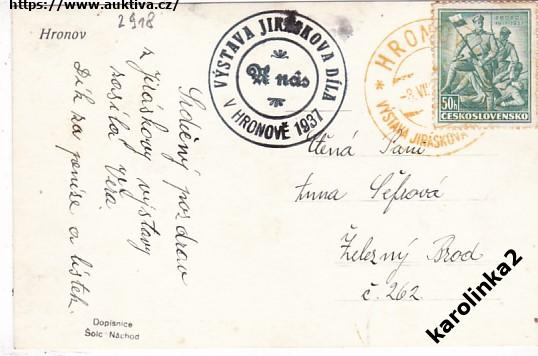 https://www.auktiva.cz/
2918
Hronov
Srdečný pozdrav
z Jiráskovy výstavy
zasílá Věra.
Dík za peníze a lístek.
VÝSTAVA JIRÁSKOVA DÍLA
U nás
V HRONOVĚ 1937
* HRONO
-8.VII
VÝSTAVA JIRÁSKOVA
ZBOROV
1917-1937
50h
ČESKOSLOVENSKO
Ctěná Paní
Anna Šefrová
Železný Brod
č. 262
Dopisnice
Šolc Náchod
karolinka2